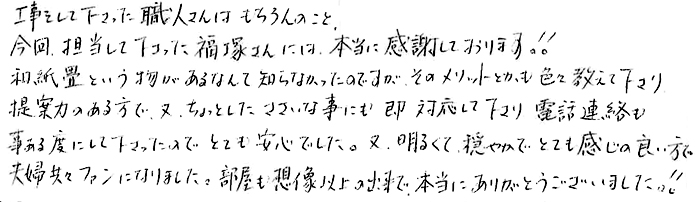 工事をして下さった職人さんはもちろんのこと、
今回、担当して下さった福塚さんには、本当に感謝しております!!
和紙畳という物があるなんて知らなかったのですが、そのメリットとかも色々教えて下さり
提案力のある方で、又、ちょっとしたささいな事にも即対応して下さり電話連絡も
事ある度にして下さったのでとても安心でした。又、明るくて、穏やかでとても感じの良い方で
夫婦共々ファンになりました。部屋も想像以上の出来で、本当にありがとうございました!!